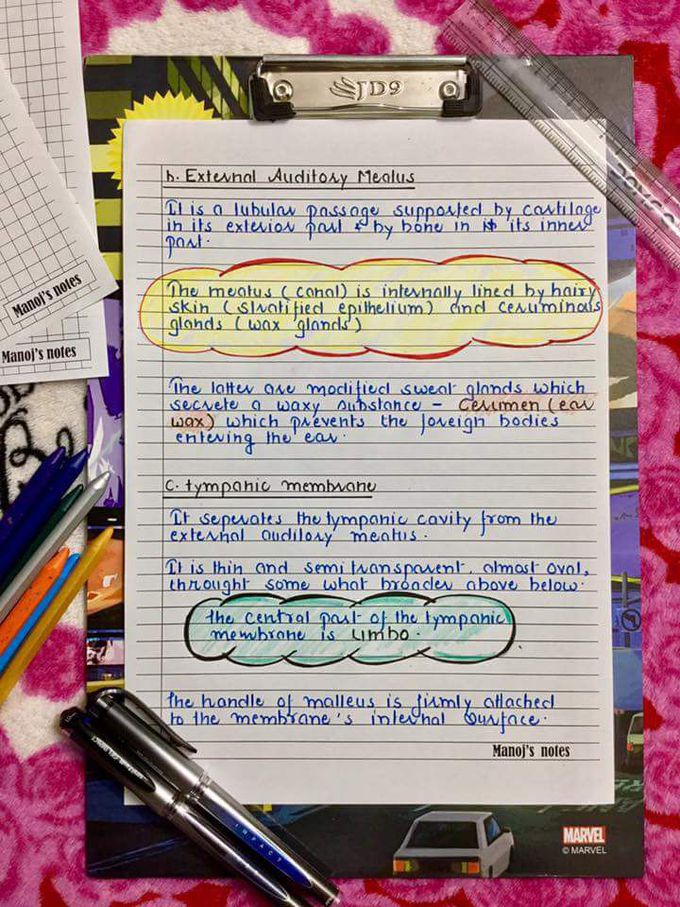 JD9
b. External Auditory Meatus
It is a tubular passage supported by cartilage
in its exterior part & by bone in its inner
part.
The meatus (canal) is internally lined by hairy
skin (stratified epithelium) and ceruminous
glands (wax glands)
The latter are modified sweat glands which
secrete a waxy substance – Cerumen (ear
wax) which prevents the foreign bodies
entering the ear.
C. tympanic membrane
It seperates the tympanic cavity from the
external auditory meatus.
It is thin and semitransparent, almost oval,
throught some what broader above below.
the central part of the tympanic
membrane is umbo.
the handle of malleus is firmly attached
to the membrane's internal surface.
Manoj's notes
Manoj's notes
Manoj's notes
IMPACT
MARVEL
© MARVEL